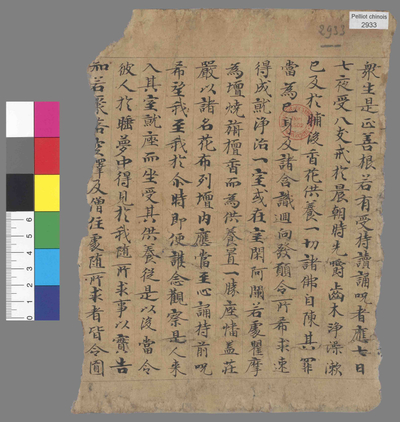 Pelliot chinois
2933
2933
眾生是正善根若有受持讀誦呪者應七日
七夜受八支戒於晨朝時先嚼齒木淨澡漱
已及於晡後香花供養一切諸佛自陳其罪
當為己身及諸含識迴向發願令所希求速
得成就淨治一室或在空閑阿蘭若處瞿摩
為壇燒旃檀香而為供養置一勝座幡蓋莊
嚴以諸名花布列壇內應當至心誦持前呪
希望我至我於尒時即便護念觀察是人來
入其室就座而坐受其供養從是以後當令
彼人於睡夢中得見於我隨所求事以實告
知若聚落空澤及僧住處隨所求者皆令圓